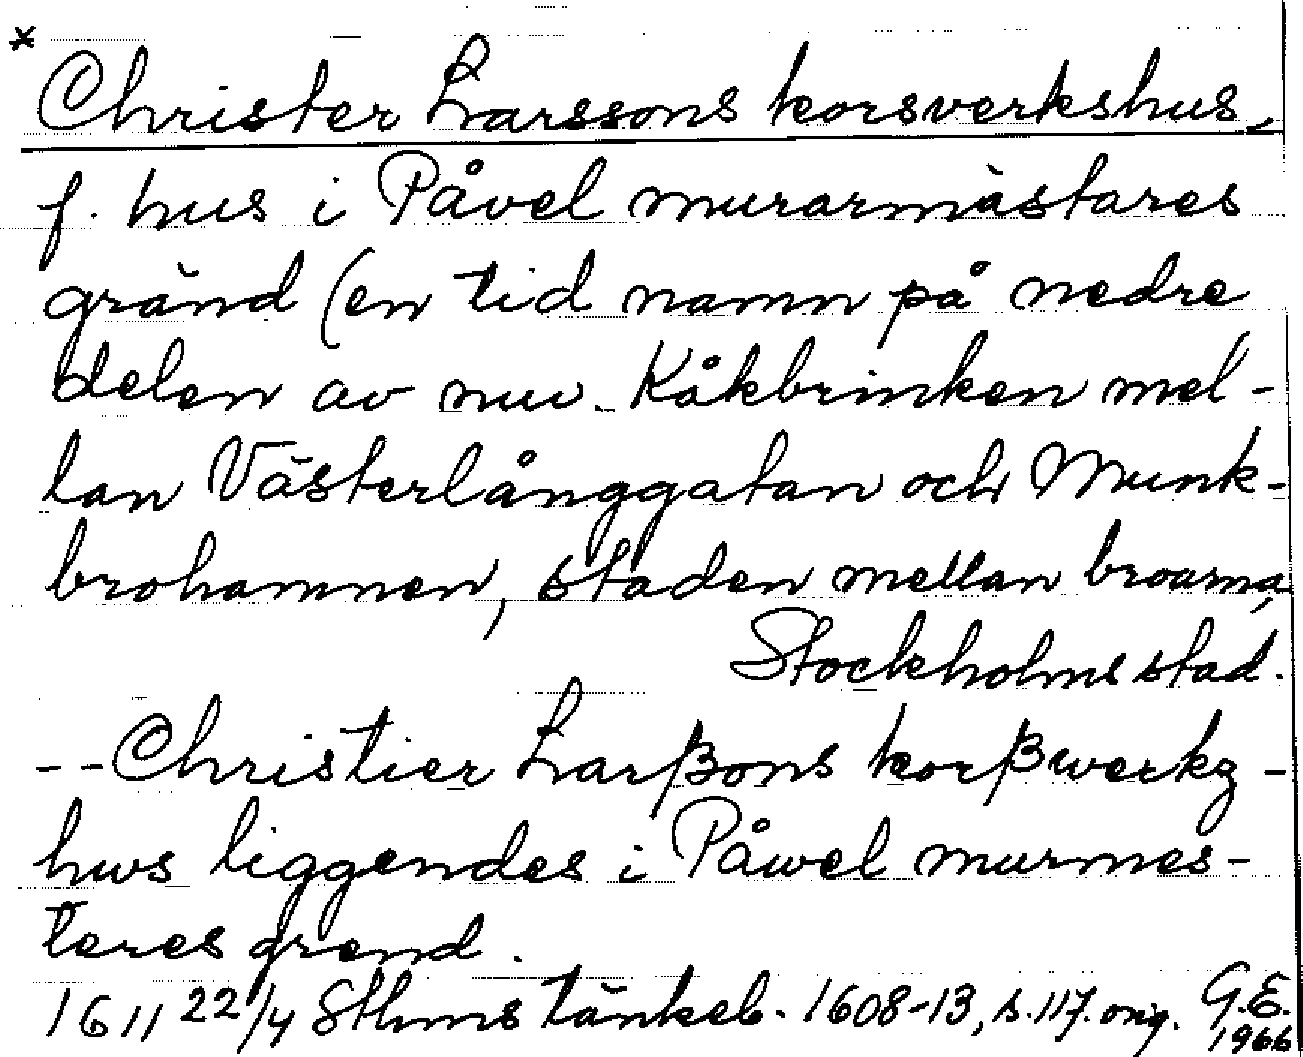 * Christer Larssons korsverkshus,
f. hus i Påvel murarmästares
gränd (en tid namn på nedre
delen av nuv. Kåkbrinken mel-
lan Västerlånggatan och Munk-
brohamnen, staden mellan broarna,
Stockholms stad.
-- Christier Larßons korßwerkz-
hws liggendes i Påwel murmes-
teres grend.
1611 22/4 Sthms tänkeb. 1608-13, s. 117. orig. G.E.
1966